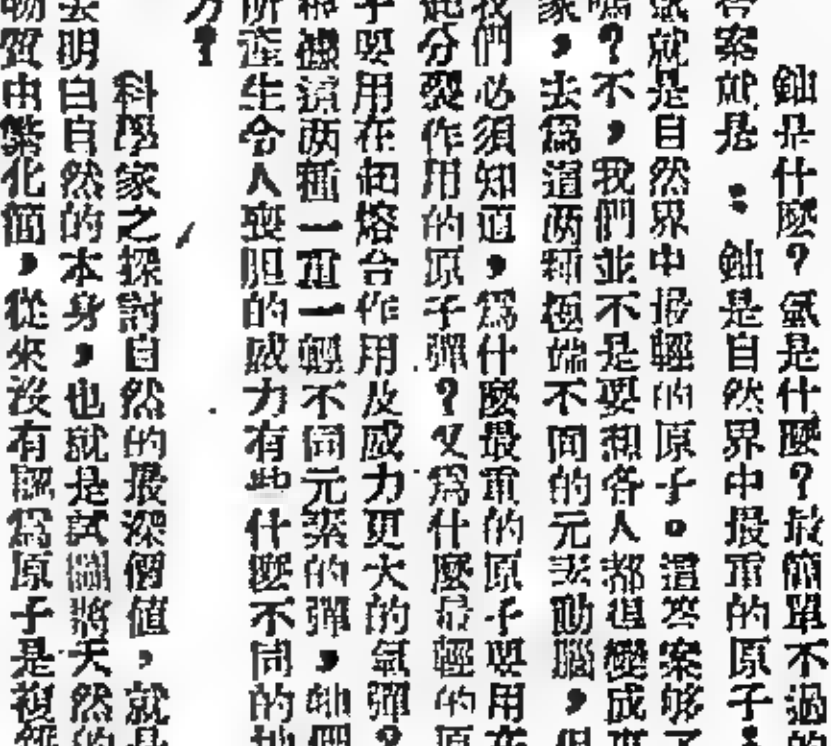 鈾是什麼?氫是什麼?最簡單不過的
答案就是:鈾是自然界中最重的原子;
氫就是自然界中最輕的原子。這答案够了
嗎?不,我們並不是要和各人都想變成專
家,去爲這兩種極端不同的元素動腦,但
我們必須知道,爲什麼最重的原子要用在
起分裂作用的原子彈?又爲什麼最輕的原
子要用在起熔合作用及威力更大的氫彈?
根據這兩種一重一輕不同元素的彈,他們
所產生令人喪胆的威力有些什麼不同的地
力?
科學家之探討自然的最深價值,就是
去明白自然的本身,也就是試圖將天然的
物質由繁化簡,從來沒有認爲原子是複雜